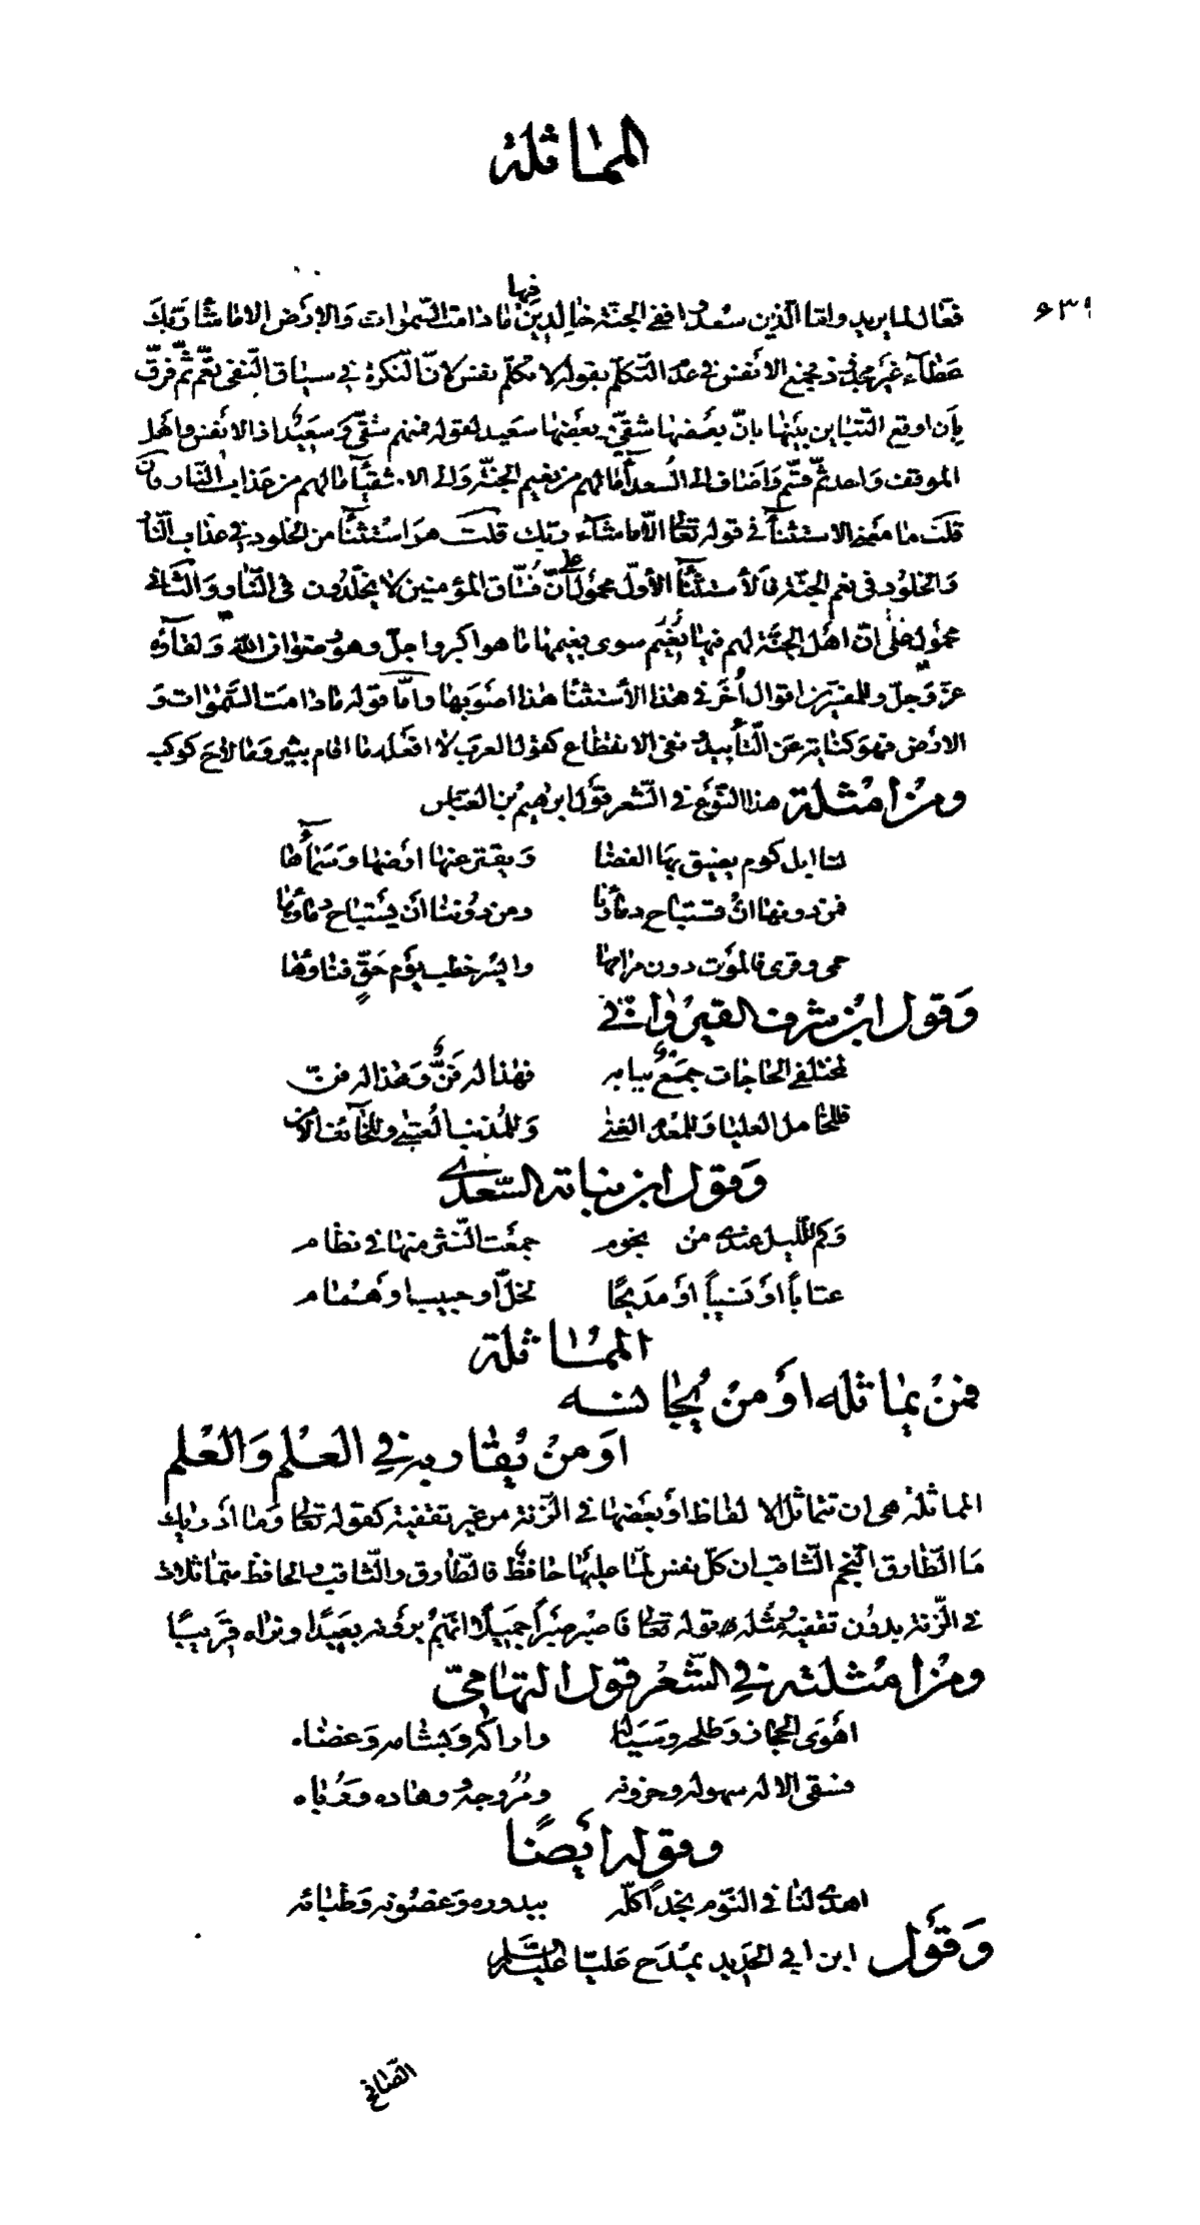 المماثلة
٦٣٩
فعّال لما يريد وامّا الّذين سُعدُوا ففي الجنّة خالِدينَ فيها مٰا دٰامت السّمٰوات وَالاَرْض الا مٰا شٰاءَ ربّكَ
عَطٰآءً غيرَ مجذُوذ فجمع الاَنفس في عدَم التّكلّم بقوله لا تكلّم نفس لانّ النّكرة في سيٰاق النّفي تعُمّ ثُمّ فرّق
بأن اوقع التّبٰاين بينهٰا بانّ بعضهٰا شقيّ وبعضهٰا سعيد لقوله فمنهم شقيّ وَسعيدٌ اذ الانفس واهل
الموقف وٰاحد ثمّ قسّم وَاضٰاف الى السُعدآء مٰا لهم من نعيم الجنّة وَالى الاشقيٰآء مٰا لهم من عذاب النّار فان
قلتَ مٰا معنى الاستثنٰآء في قوله تعالى الّا مٰا شٰآء ربّك قلت هو اسْتثنٰآء من الخلود في عذاب النّار
وَالخلوُد في نعيم الجنّة فَالأستثنٰآء الأوّل محموُل على أنّ فُسّاق المؤمنين لا يخلّدُون في النّار وَالثّاني
محموُل على انّ اهل الجنّة لهم فيهٰا نعيم سوى نعيمهٰا مٰا هو اكبر واجلّ وهو رضوٰان اللّه وَلقآؤه
عزّ وَجلّ وللمفسّرين اقوال اُخَر في هٰذا الأستثنٰا هٰذا اصوَبهٰا وامّا قوله مٰا دٰامَت السّمٰوٰات وَ
الارض فهوَ كنٰاية عَن التّأبيد ونفي الانقطٰاع كقول العرب لا افعله مٰا اقٰام ثبير وَمٰا لاحَ كوكب
ومن امثلة هذا النّوع في الشّعر قول ابرهيم بن العبّاس
لنٰا ابل كوم يضيق بهَا الفضٰا وَيفترّ عنهٰا ارْضهٰا وَسَمٰآؤهٰا
فمن دونهٰا انْ تستبٰاح دمٰاؤنٰا ومن دوُننٰا أن يُستبٰاح دمٰاؤهٰا
حمى وقرى فالموت دون مرٰامهٰا وايسَر خطب يوْم حَقٍّ فنٰاؤهٰا
وَقول ابن شرف القيرُوٰاني
لمختلفي الحٰاجٰات جمعٌ ببٰابه فهٰذا له فَنٌّ وَهٰذا له فنّ
فللخٰامل العليٰا وَللمعْدم الغنٰى وَللمُذنب العُتبٰى وللخٰآئف الأمن
وَقول ابن نبٰاتة السّعْديّ
وَكم للّيل عندي منْ نجوم جمعْت النّثر منهٰا في نظٰام
عتٰاباً اوْ نسيباً اوْ مديحًا لخلّ او حبيب او هُمٰام
المُمٰاثلة
فمنْ يمٰاثله اوْ منْ يُجٰانسه
اوَ منْ يُقٰاربه في العلْم وَالعلم
المماثلة هى ان تتماثل الالفٰاظ اوْ بعضهٰا في الزّنة من غير تقفية كقوله تعالى وَمٰا ادْرٰيك
مَا الطّٰارق النّجم الثّاقب ان كلّ نفس لمّا عليهٰا حٰافظ فالطّارق والثّاقب والحافظ متمٰاثلات
في الزّنة بدوُن تقفية ومثله قوله تعالى فاصبر صَبْراً جَميلًا انّهمْ يروْنه بعَيدًا ونرٰاه قَريبًا
ومنْ امثلته في الشّعر قول التهٰاميّ
اهْوَى الحجٰاز وَطلحه وسَيٰاله وارٰاكه وَبشٰامه وَعضٰاه
وسقى الاله سهوله وحزونه ومُروجه ووهٰاده وَرُبٰاه
وقوله ايْضًا
اهدى لنٰا في النّوم نجداً كلّه ببدوره وَغصُونه وَظبٰائه
وَقوْل ابن ابي الحديد يمْدَح عَليّا عليه السّلام
الصافح